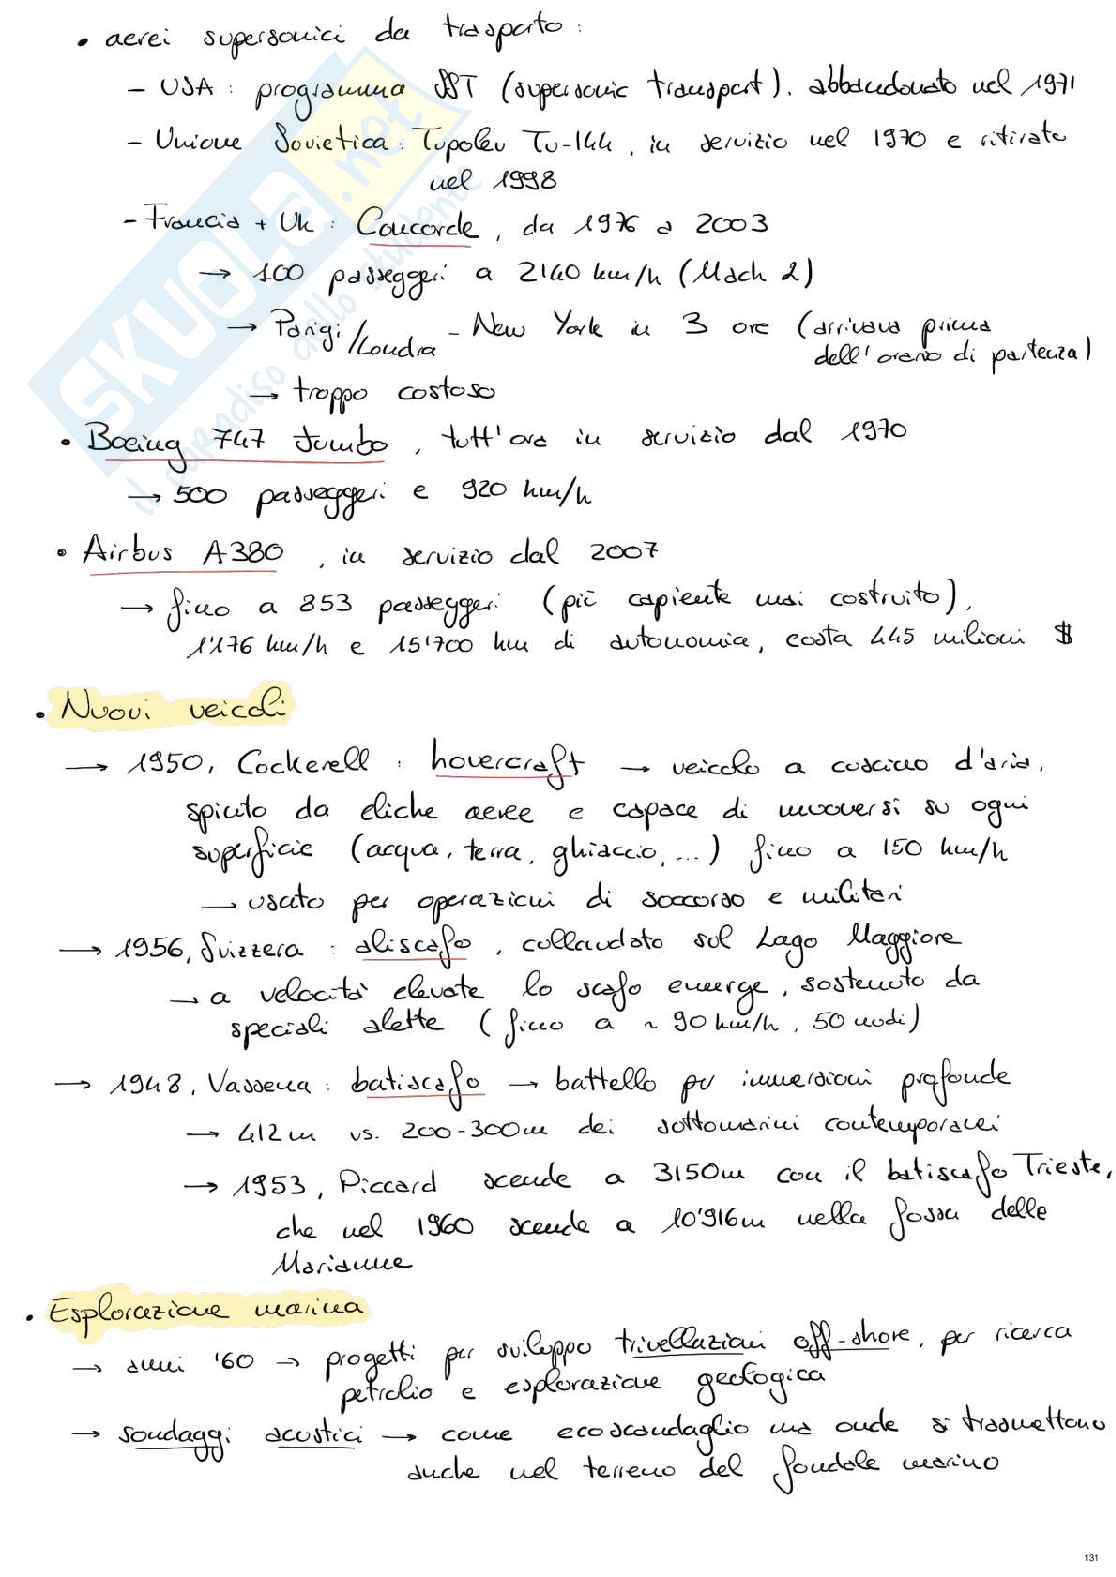 • aerei supersonici da trasporto:
- USA: programma SST (supersonic transport), abbandonato nel 1971
- Unione Sovietica: Tupolev Tu-144, in servizio nel 1970 e ritirato
nel 1998
- Francia + UK: Concorde, da 1976 a 2003
→ 100 passeggeri a 2140 km/h (Mach 2)
→ Parigi/Londra - New York in 3 ore (arrivava prima
dell'orario di partenza)
→ troppo costoso
• Boeing 747 Jumbo, tutt'ora in servizio dal 1970
→ 500 passeggeri e 920 km/h
• Airbus A380, in servizio dal 2007
→ fino a 853 passeggeri (più capiente mai costruito),
1'176 km/h e 15'700 km di autonomia, costa 445 milioni $
• Nuovi veicoli
→ 1950, Cockerell: hovercraft → veicolo a cuscino d'aria,
spinto da eliche aeree e capace di muoversi su ogni
superficie (acqua, terra, ghiaccio, ...) fino a 150 km/h
→ usato per operazioni di soccorso e militari
→ 1956, Svizzera: aliscafo, collaudato sul Lago Maggiore
→ a velocità elevate lo scafo emerge, sostenuto da
speciali alette (fino a ~ 90 km/h, 50 nodi)
→ 1948, Vassena: batiscafo → battello per immersioni profonde
→ 412m vs. 200-300m dei sottomarini contemporanei
→ 1953, Piccard scende a 3150m con il batiscafo Trieste,
che nel 1960 scende a 10'916m nella fossa delle
Marianne
• Esplorazione marina
→ anni '60 → progetti per sviluppo trivellazioni off-shore, per ricerca
petrolio e esplorazione geologica
→ sondaggi acustici → come ecoscandaglio ma onde si trasmettono
anche nel terreno del fondale marino
SKUOLA.net
il paradiso dello studente
131